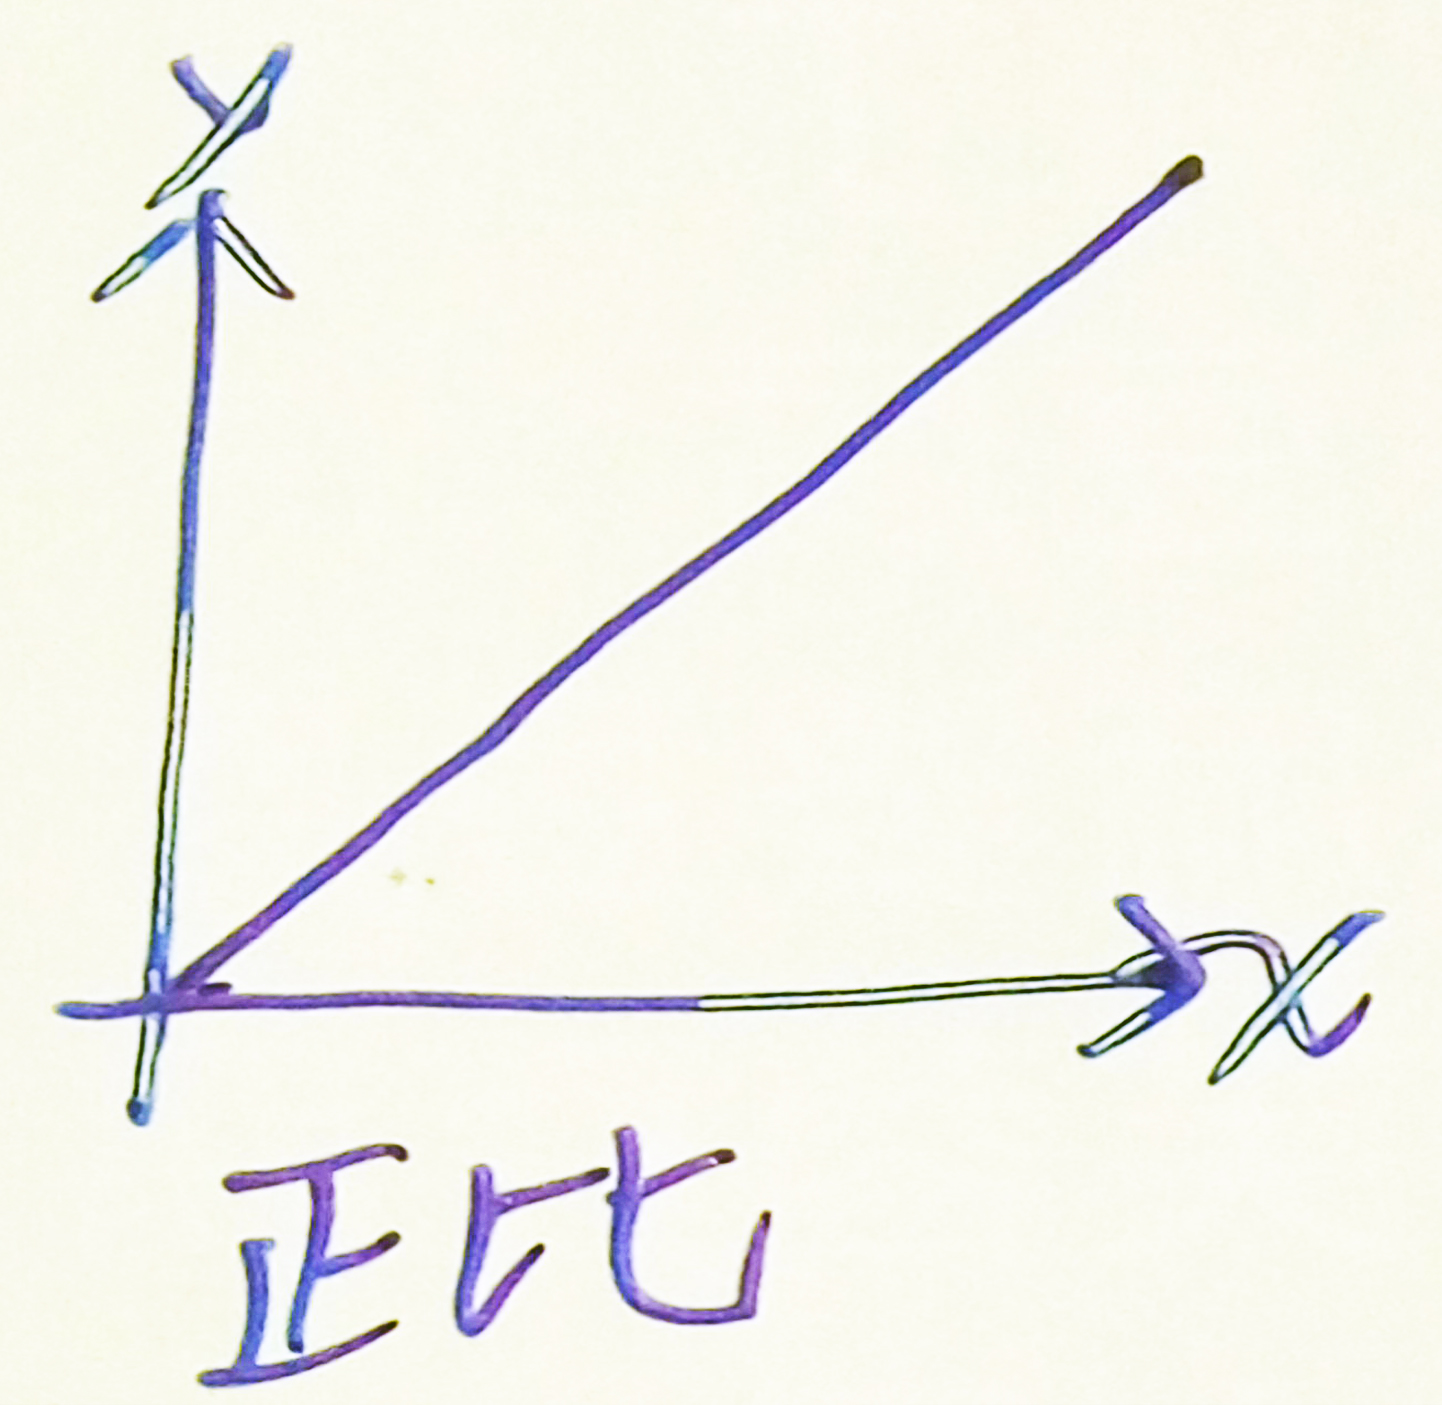 Y
x
正比